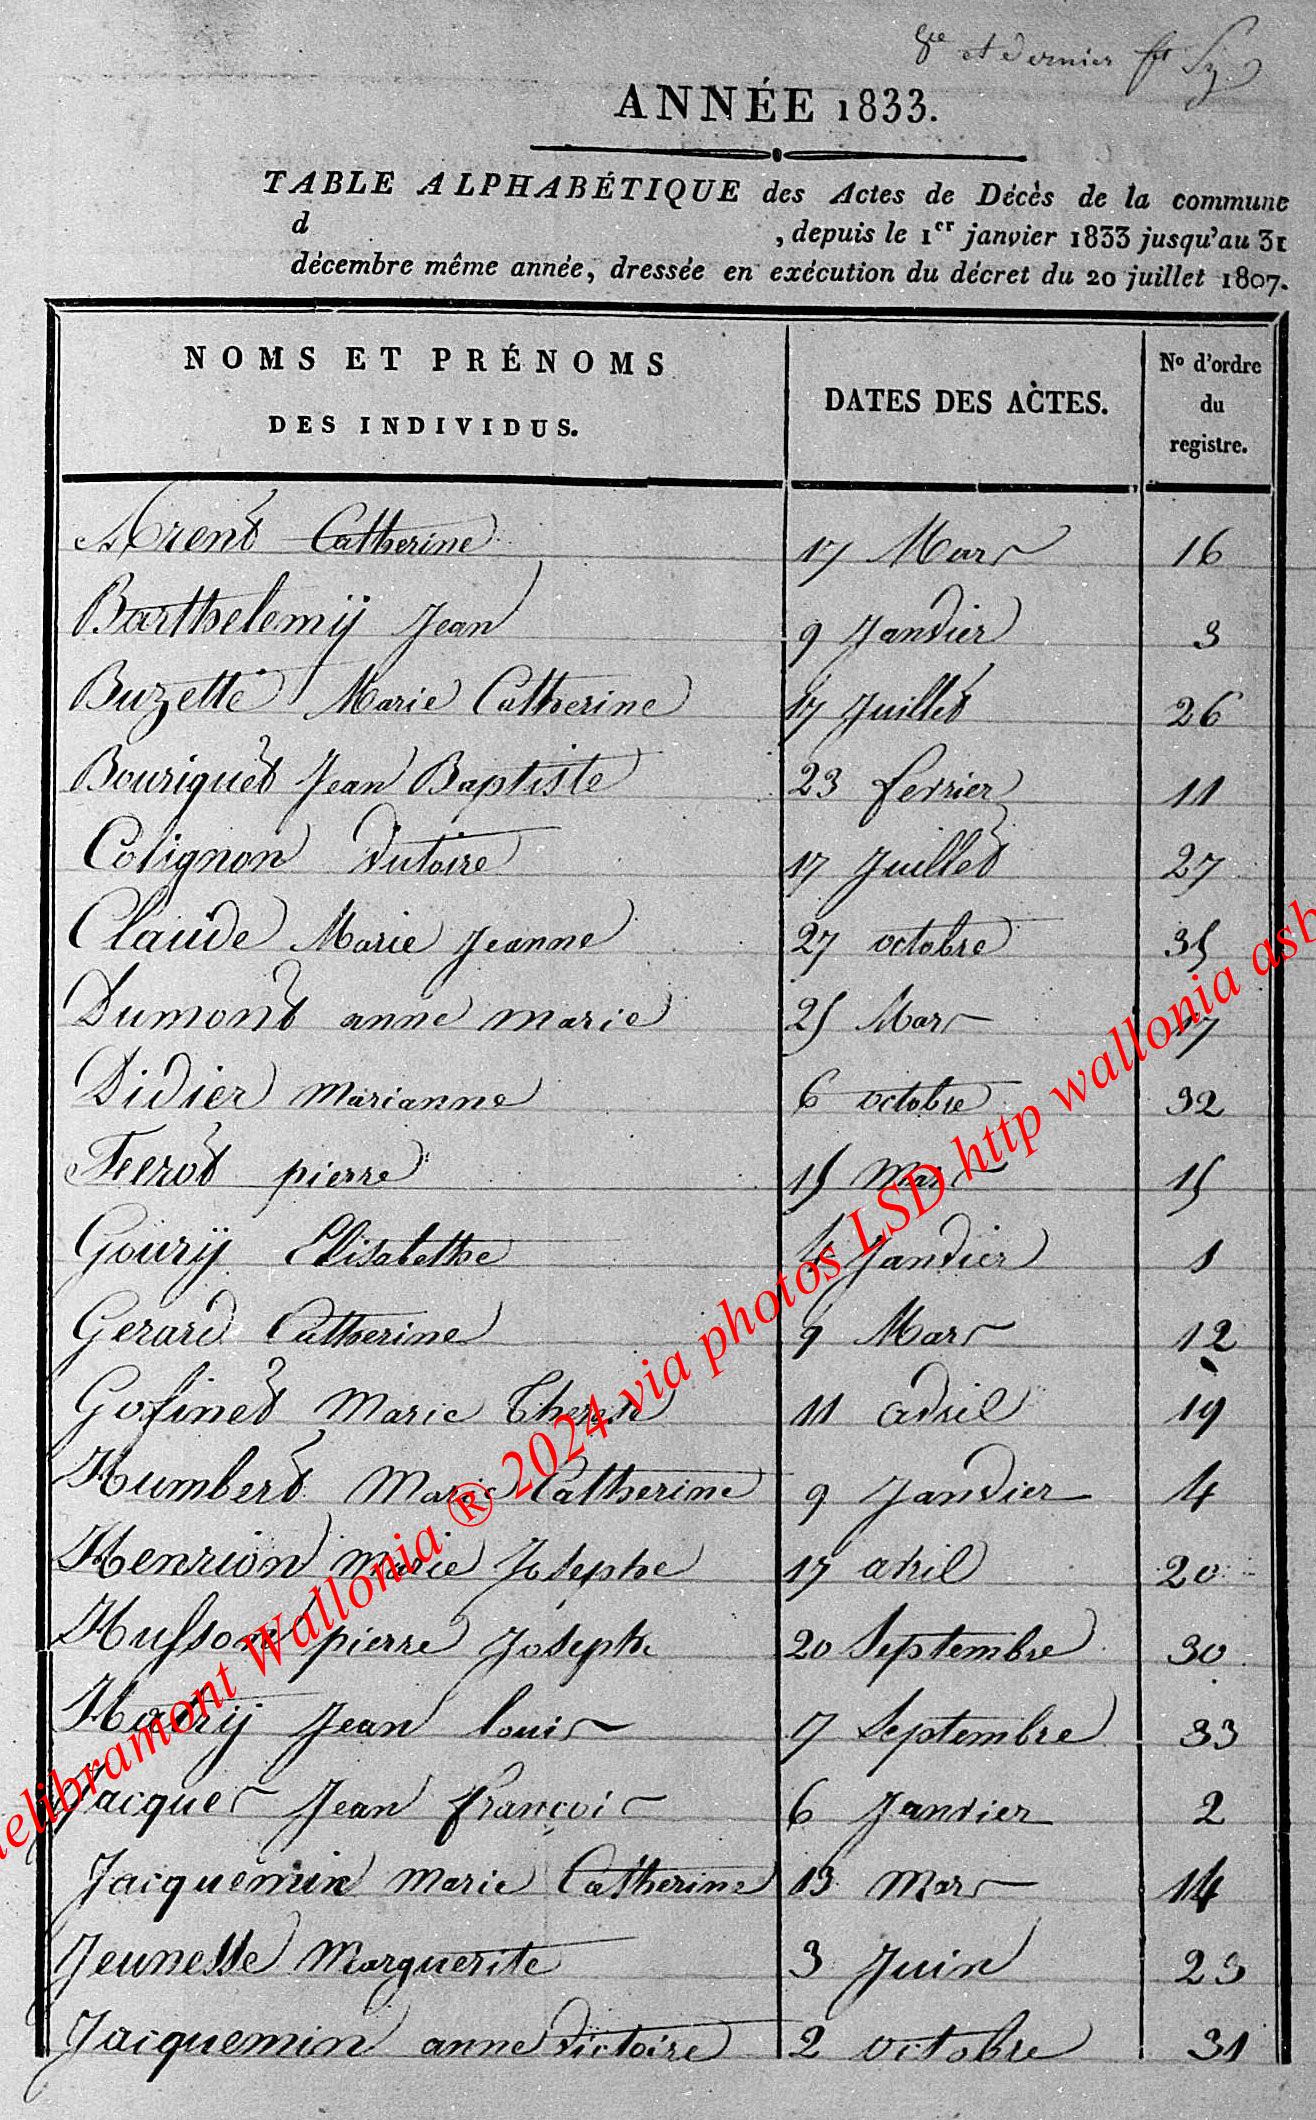 8ee et dernier ft
ANNÉE 1833.
TABLE ALPHABÉTIQUE des Actes de Décès de la commune
d , depuis le 1er janvier 1833 jusqu'au 31
décembre même année, dressée en exécution du décret du 20 juillet 1807.
NOMS ET PRÉNOMS DES INDIVIDUS. DATES DES ACTES. No d'ordre du registre.
Arend Catherine 17 Mars 16
Barthelemÿ Jean 9 Janvier 3
Buzette Marie Catherine 17 Juillet 26
Bouriguet Jean Baptiste 23 fevrier 11
Colignon Victoire 17 Juillet 27
Claude Marie Jeanne 27 octobre 35
Dumont anne marie 25 Mars 17
Didier marianne 6 octobre 32
Ferot pierre 15 Mars 15
Gourÿ Elisabethe 4 Janvier 1
Gerard Catherine 9 Mars 12
Gofinet Marie Therese 11 avril 19
Humbert Marie Catherine 9 Janvier 4
Henrion marie Josephe 17 avril 20
Husson pierre Joseph 20 Septembre 30
Hatrÿ Jean louis 7 Septembre 33
Jacques Jean françois 6 Janvier 2
Jacquemin marie Catherine 13 Mars 14
Jeunesse Marguerite 3 Juin 23
Jacquemin anne Victoire 2 octobre 31
elibramont Wallonia ® 2024 via photos LSD http wallonia asb